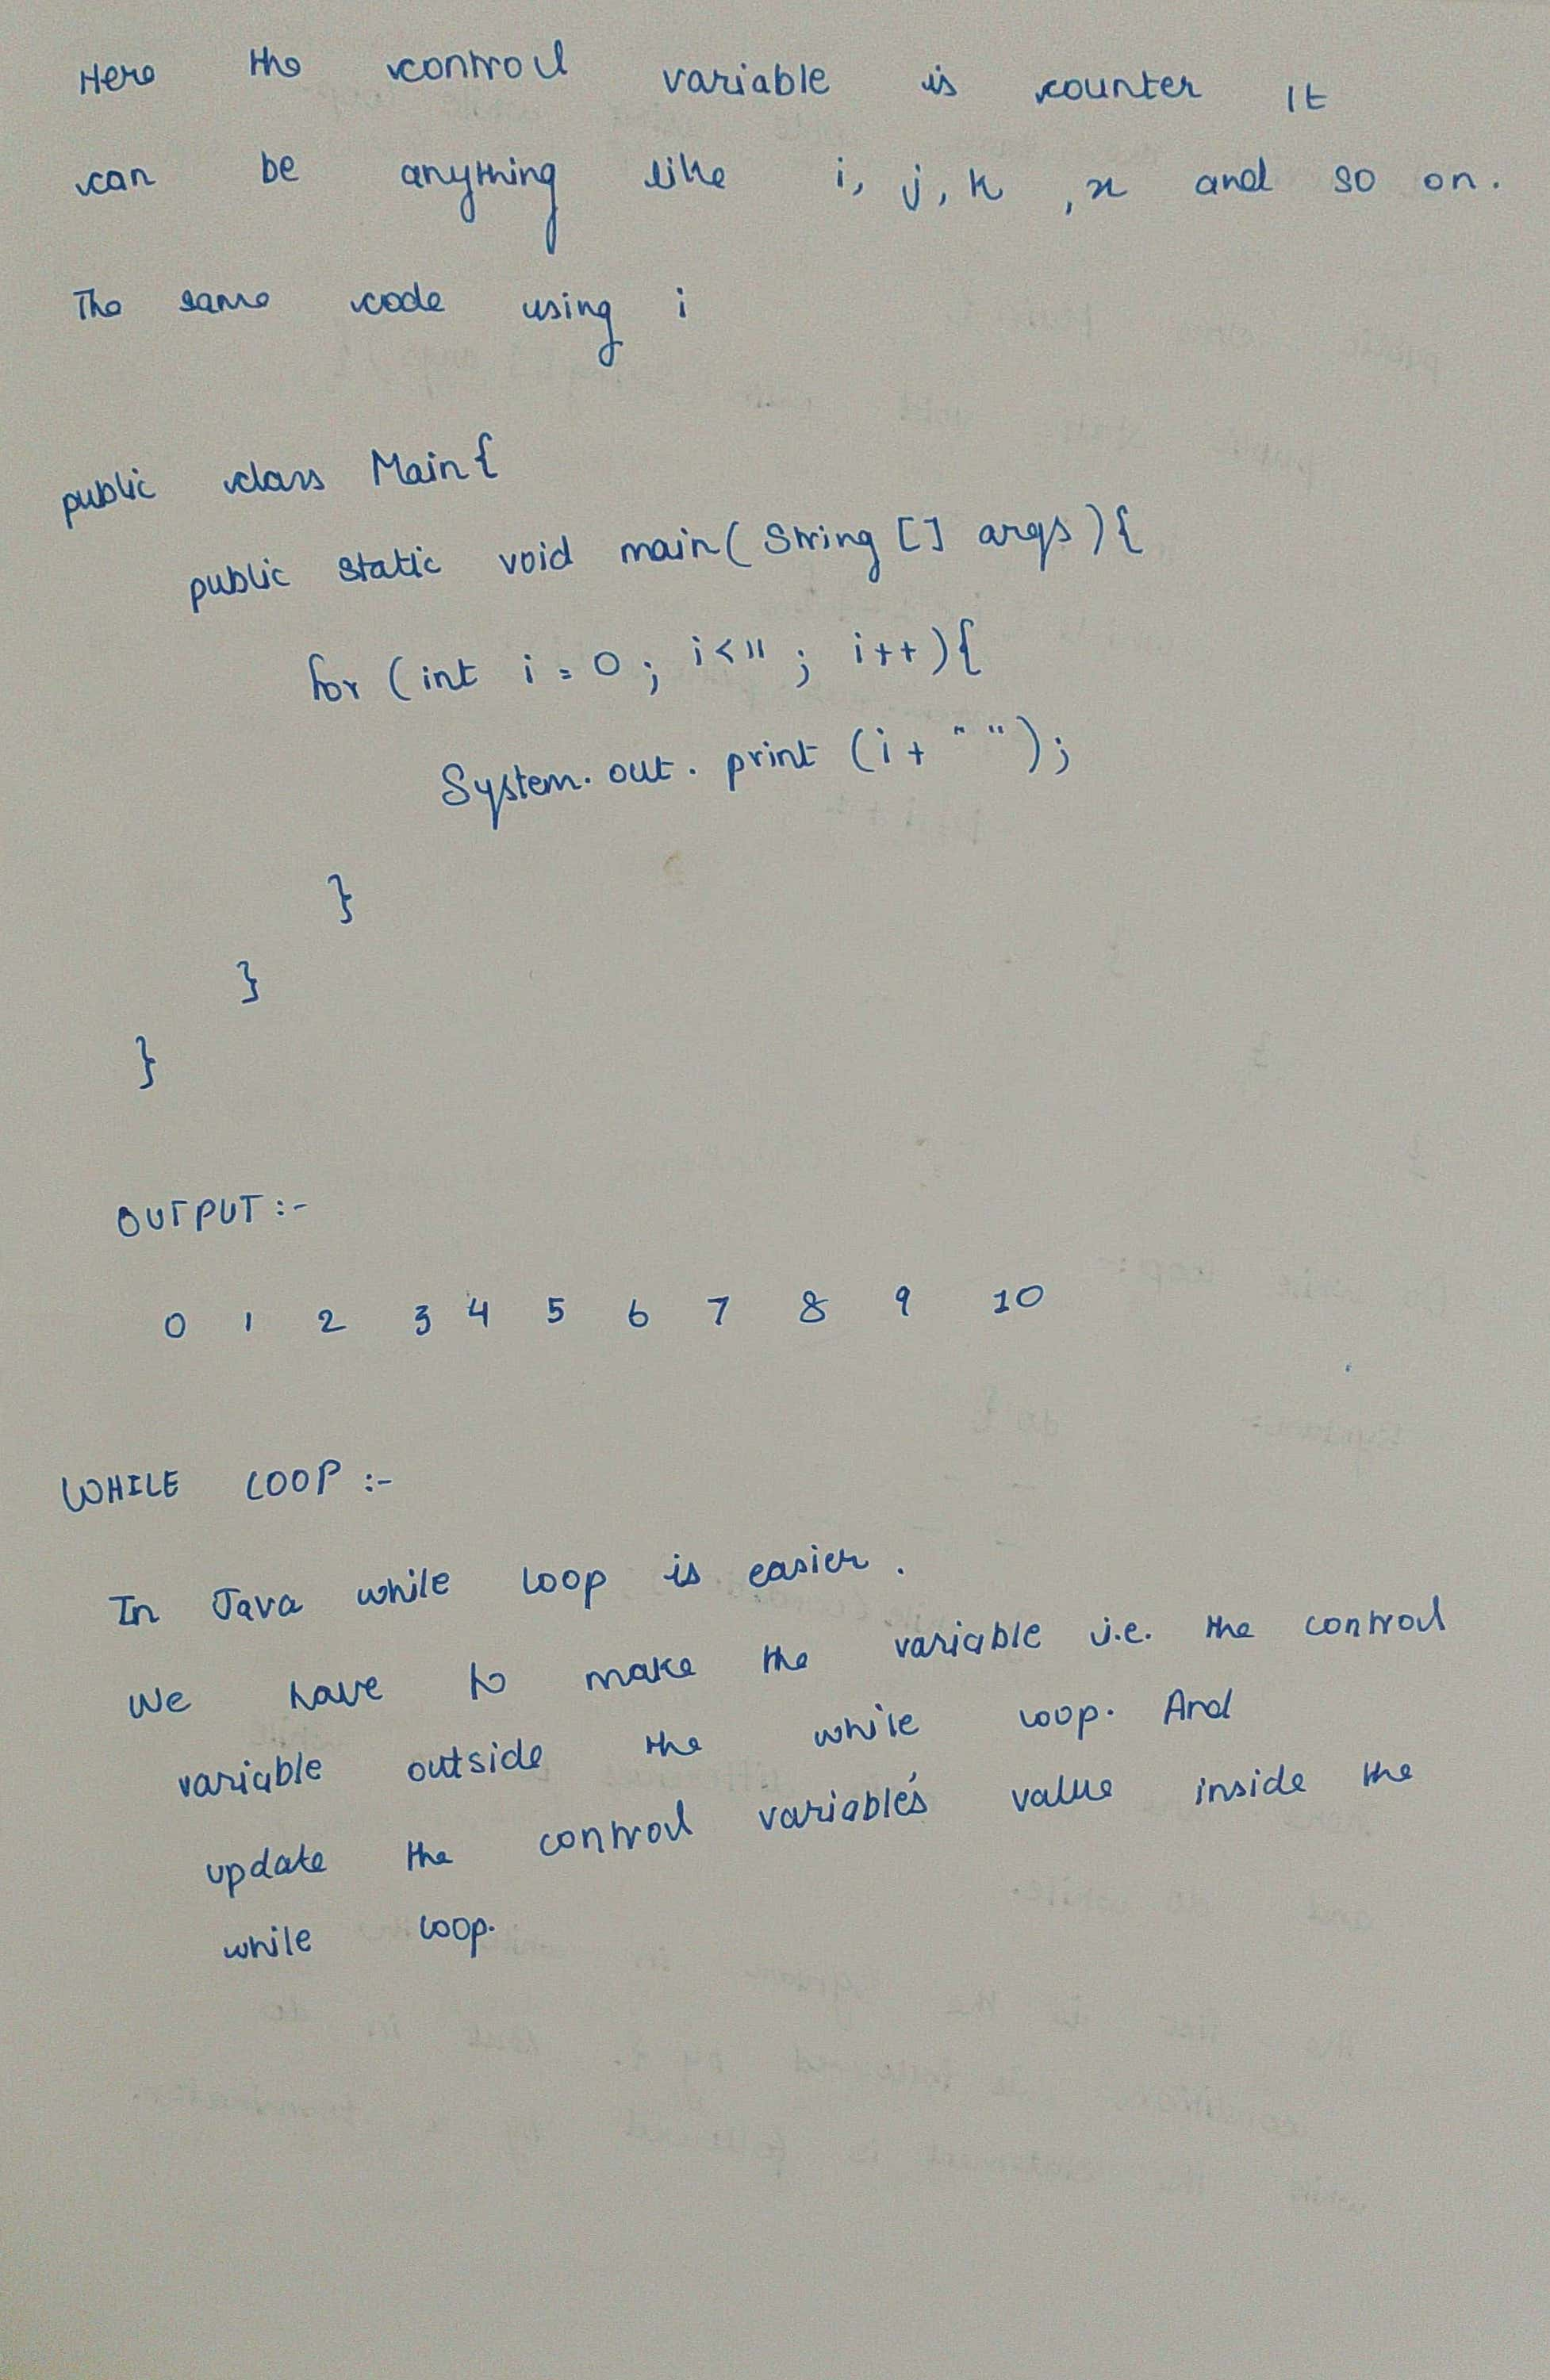 Here the control variable is counter It
can be anything like i, j, k , x and so on.
The same code using i
public class Main{
public static void main( String [] args ){
for ( int i = 0 ; i<11 ; i++){
System. out. print (i+ " ");
}
}
}
OUTPUT :-
0 1 2 3 4 5 6 7 8 9 10
WHILE LOOP :-
In Java while loop is easier .
We have to make the variable i.e. the control
variable outside the while loop. And
update the control variable's value inside the
while loop.